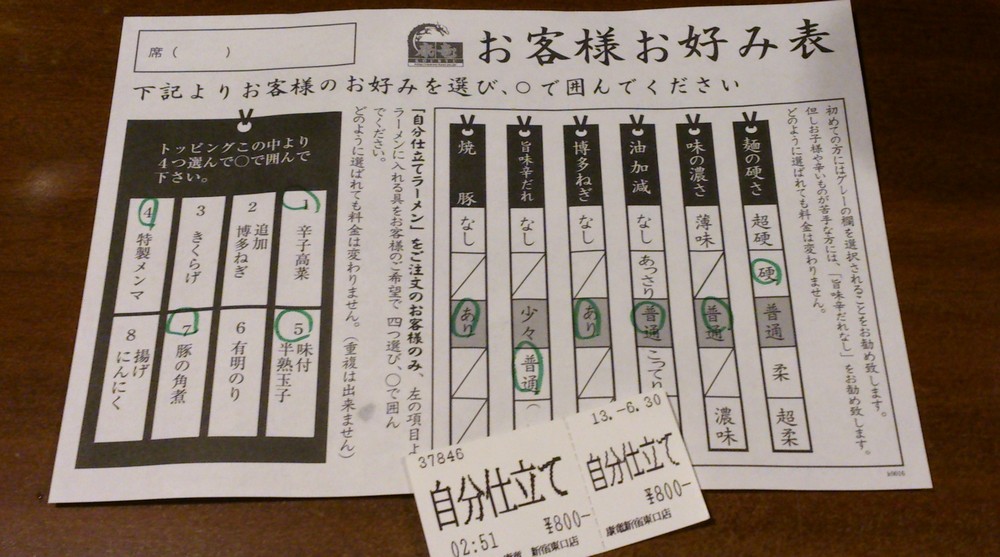 席（　　）
お客様お好み表
下記よりお客様のお好みを選び、○で囲んでください
初めての方にはグレーの欄を選択されることをお勧め致します。
但しお子様や辛いものが苦手な方には、「旨味辛だれなし」をお勧め致します。
どのように選ばれても料金は変わりません。
麺の硬さ
超硬
硬
普通
柔
超柔
味の濃さ
薄味
普通
濃味
油加減
なし
あっさり
普通
こってり
博多ねぎ
なし
あり
旨味辛だれ
なし
少々
普通
焼豚
なし
あり
「自分仕立てラーメン」をご注文のお客様のみ、左の項目よ
ラーメンに入れる具をお客様のご希望で 四つ選び、○で囲ん
でください。
どのように選ばれても料金は変わりません。（重複は出来ません）
トッピングこの中より
4つ選んで○で囲んで
下さい。
1 辛子高菜
2 追加博多ねぎ
3 きくらげ
4 特製メンマ
5 味付半熟玉子
6 有明のり
7 豚の角煮
8 揚げにんにく
37846
13.-6.30
自分仕立て
¥800-
02:51
新宿東口店
自分仕立て
¥800-
新宿東口店